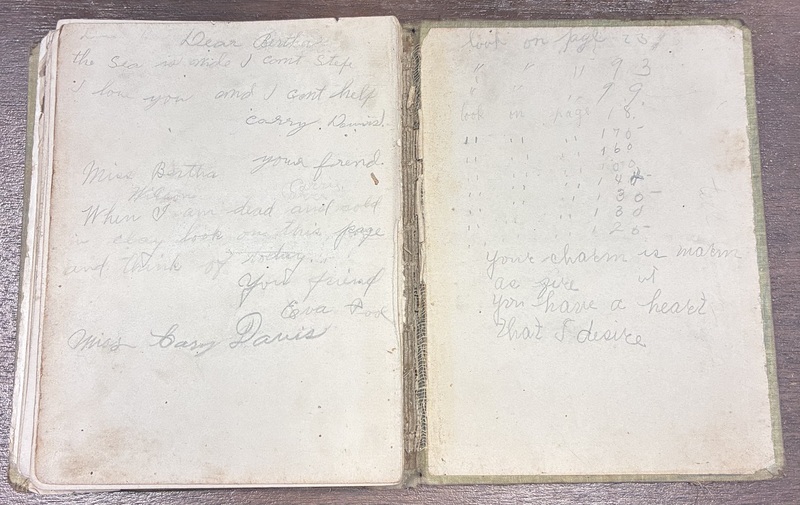 Dear Bertha
the Sea is wide I cant Step
I love you and I cant help
carry. Davis.
your frend.
Miss Bertha
Wilson
Carry
When I am dead and cold
in clay look on this page
and think of today.
Your friend
Eva
Miss Cary Davis
look on page 23
" " " 93
" " " 79
look on page 18.
" " " 170
" " " 160
" " "
" " " 14
" " " 130
" " " 130
" " " 120
your charm is marm
as fire
you have a heart
that I desire